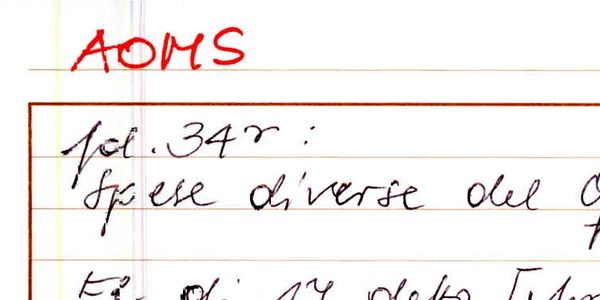 AOMS
fol. 34r:
Spese diverse del
di 17 detto